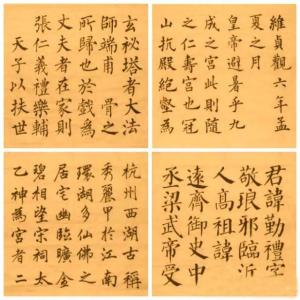 玄秘塔者大法
師端甫骨之
所歸也於戲為
丈夫者在家則
張仁義禮樂輔
天子以扶世
維貞觀六年孟
夏之月
皇帝避暑乎九
成之宮此則隨
之仁壽宮也冠
山抗殿絕壑為
杭州西湖古稱
秀麗甲於江南
環湖多仙佛之
居宅幽臨曠金
碧相望宗祠太
乙神為宮者二
君諱勤禮字
敬琅邪臨沂
人高祖諱
遠齊御史中
丞梁武帝受